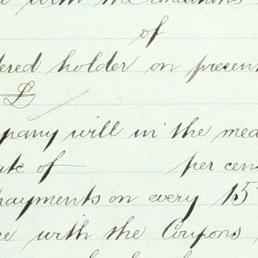 with
of
ered holder on present
£
pany will in the mea
ate of per cen
payments on every 15
e with the Coupons